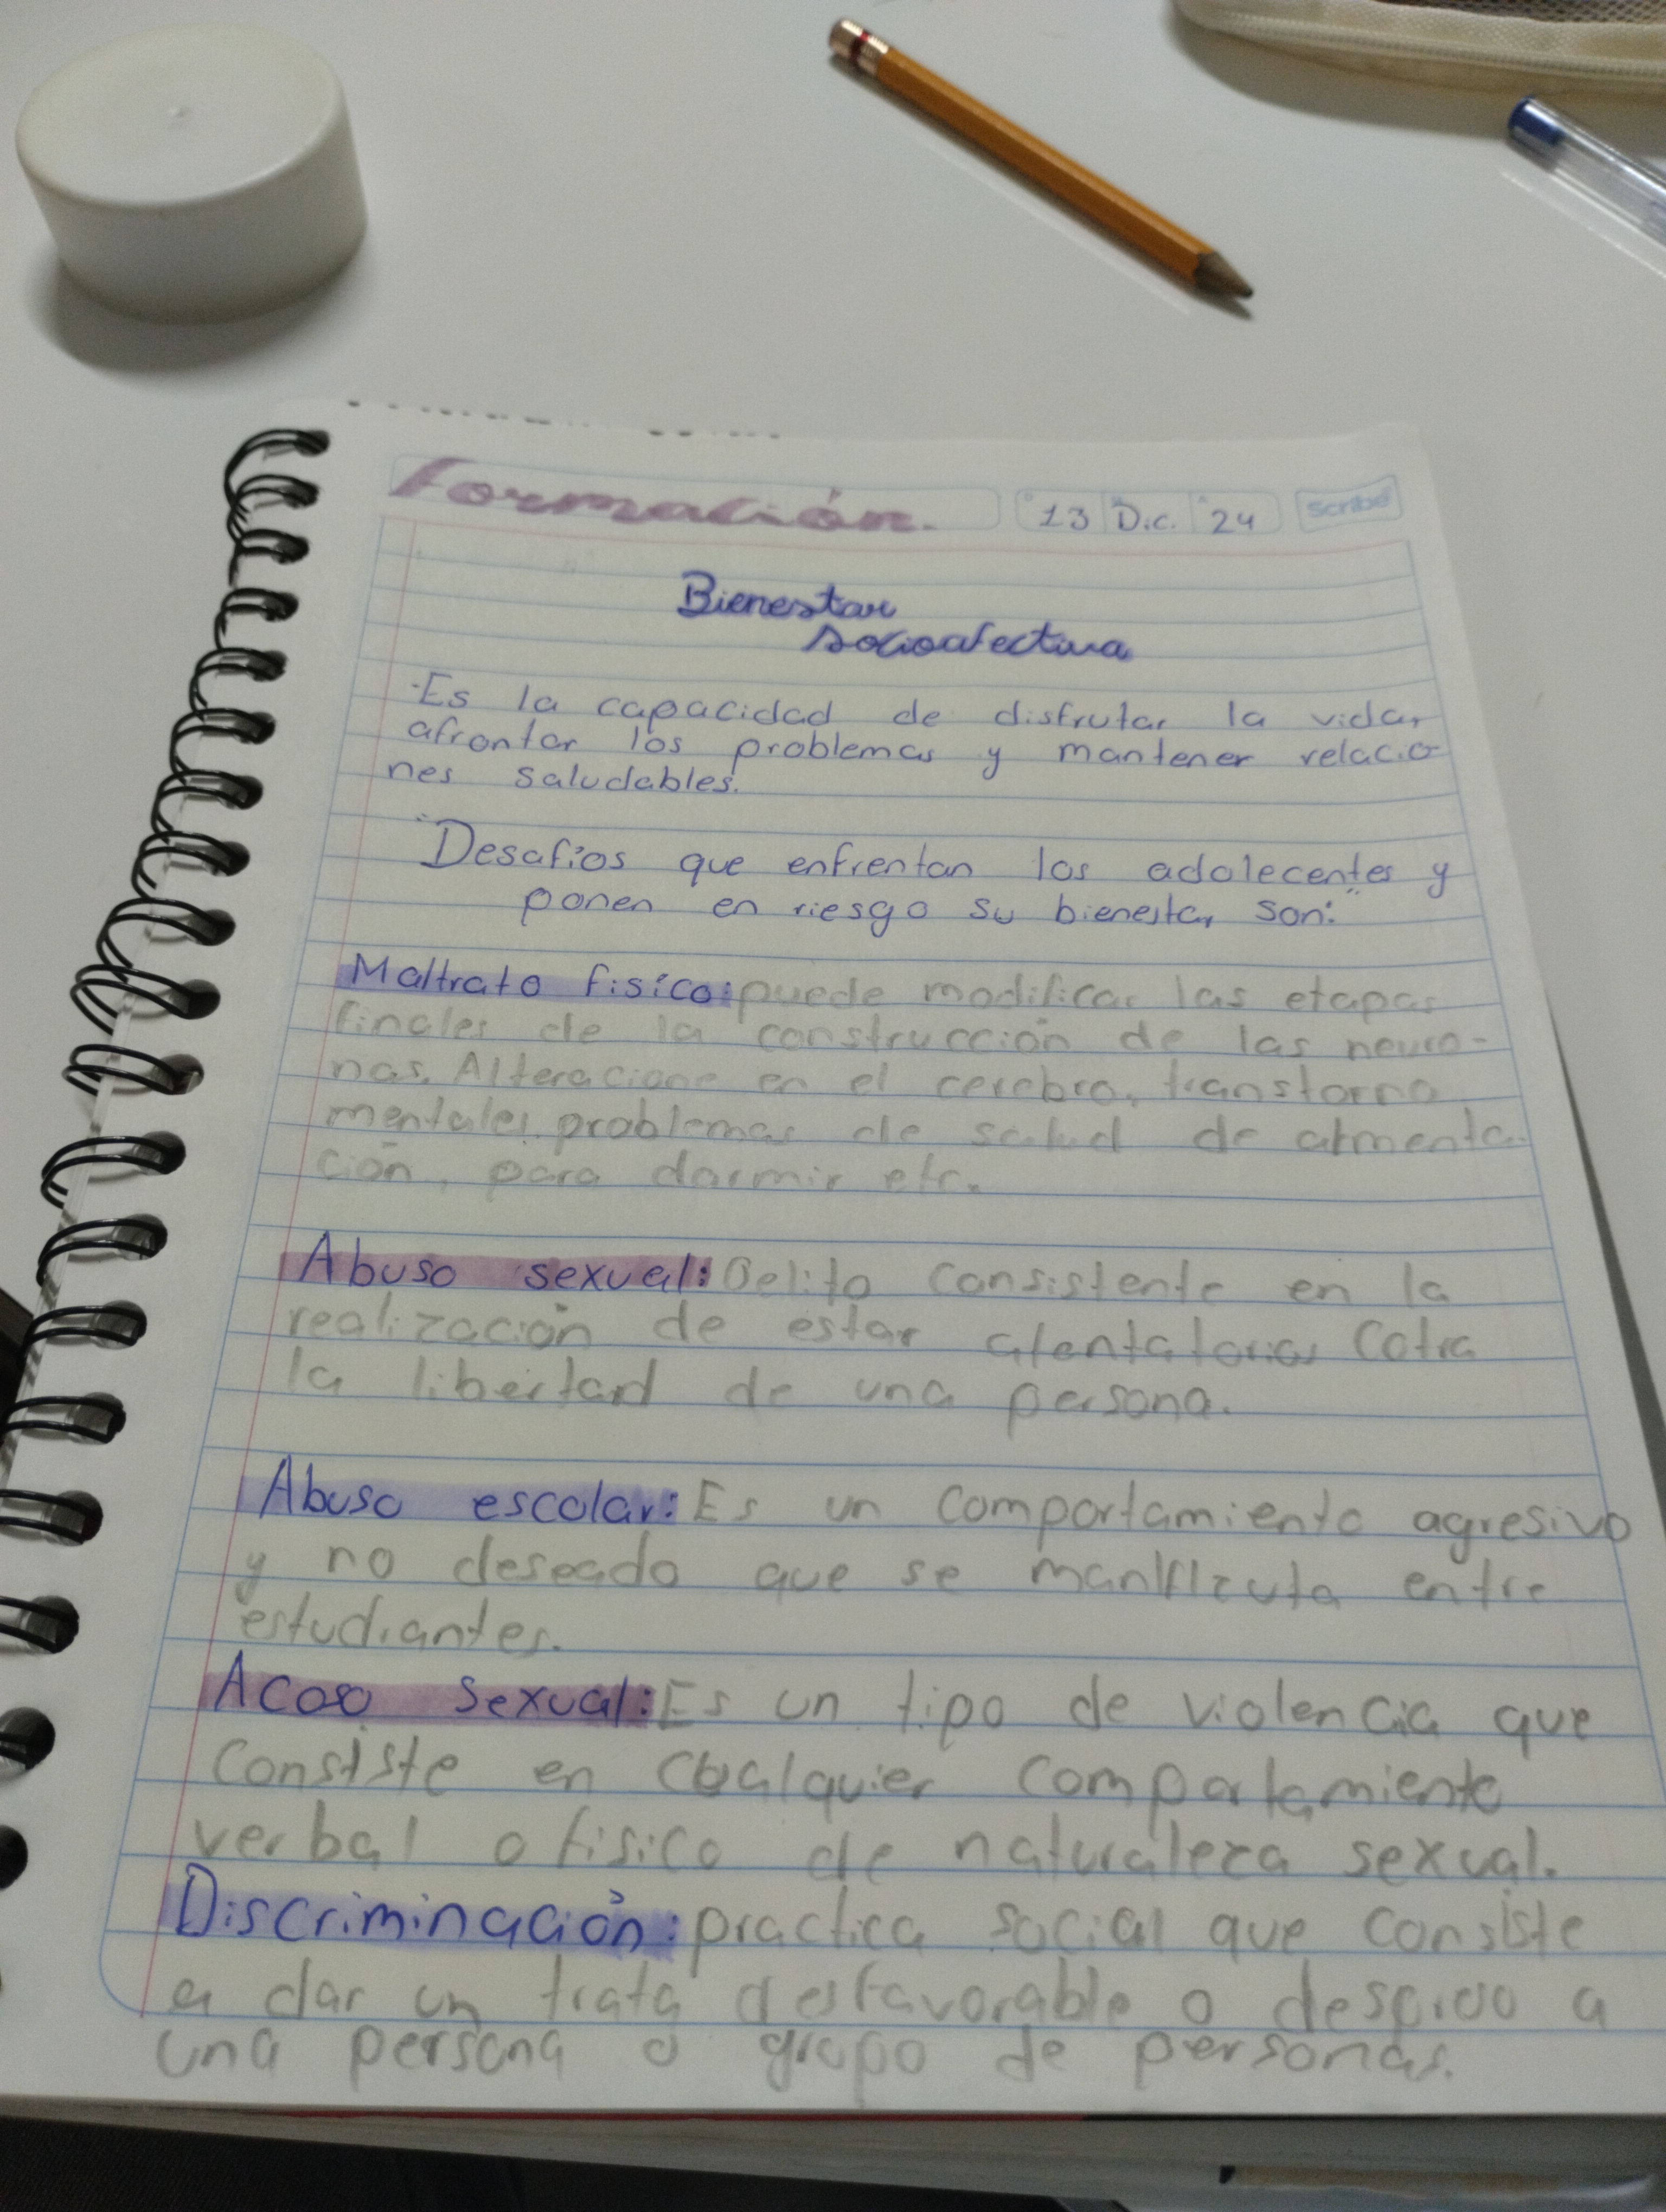 Formación.
13 Dic. 24 Scribe
Bienestar
socioafectiva
-Es la capacidad de disfrutar la vida,
afrontar los problemas y mantener relacio
nes saludables.
"Desafíos que enfrentan los adolecentes y
ponen en riesgo su bienestar son:"
Maltrato fisíco: puede modificar las etapas
finales de la construcción de las neuro-
nas. Alteracione en el cerebro, transtorno
mentales, problemas de salud de
ción, para dormir etc.
Abuso sexual: Delito consistente en la
realización de estar atentatorias Cotra
la libertard de una persona.
Abuso escolar: Es un comportamiento agresivo
y no deseado que se entre
estudiantes.
Acoso sexual: Es un tipo de violencia que
Consiste en cualquier comportamiento
verbal o fisico de naturaleza sexual.
Discriminación: practica social que consiste
en dar un trata desfavorable o a
una persona o grupo de personas.